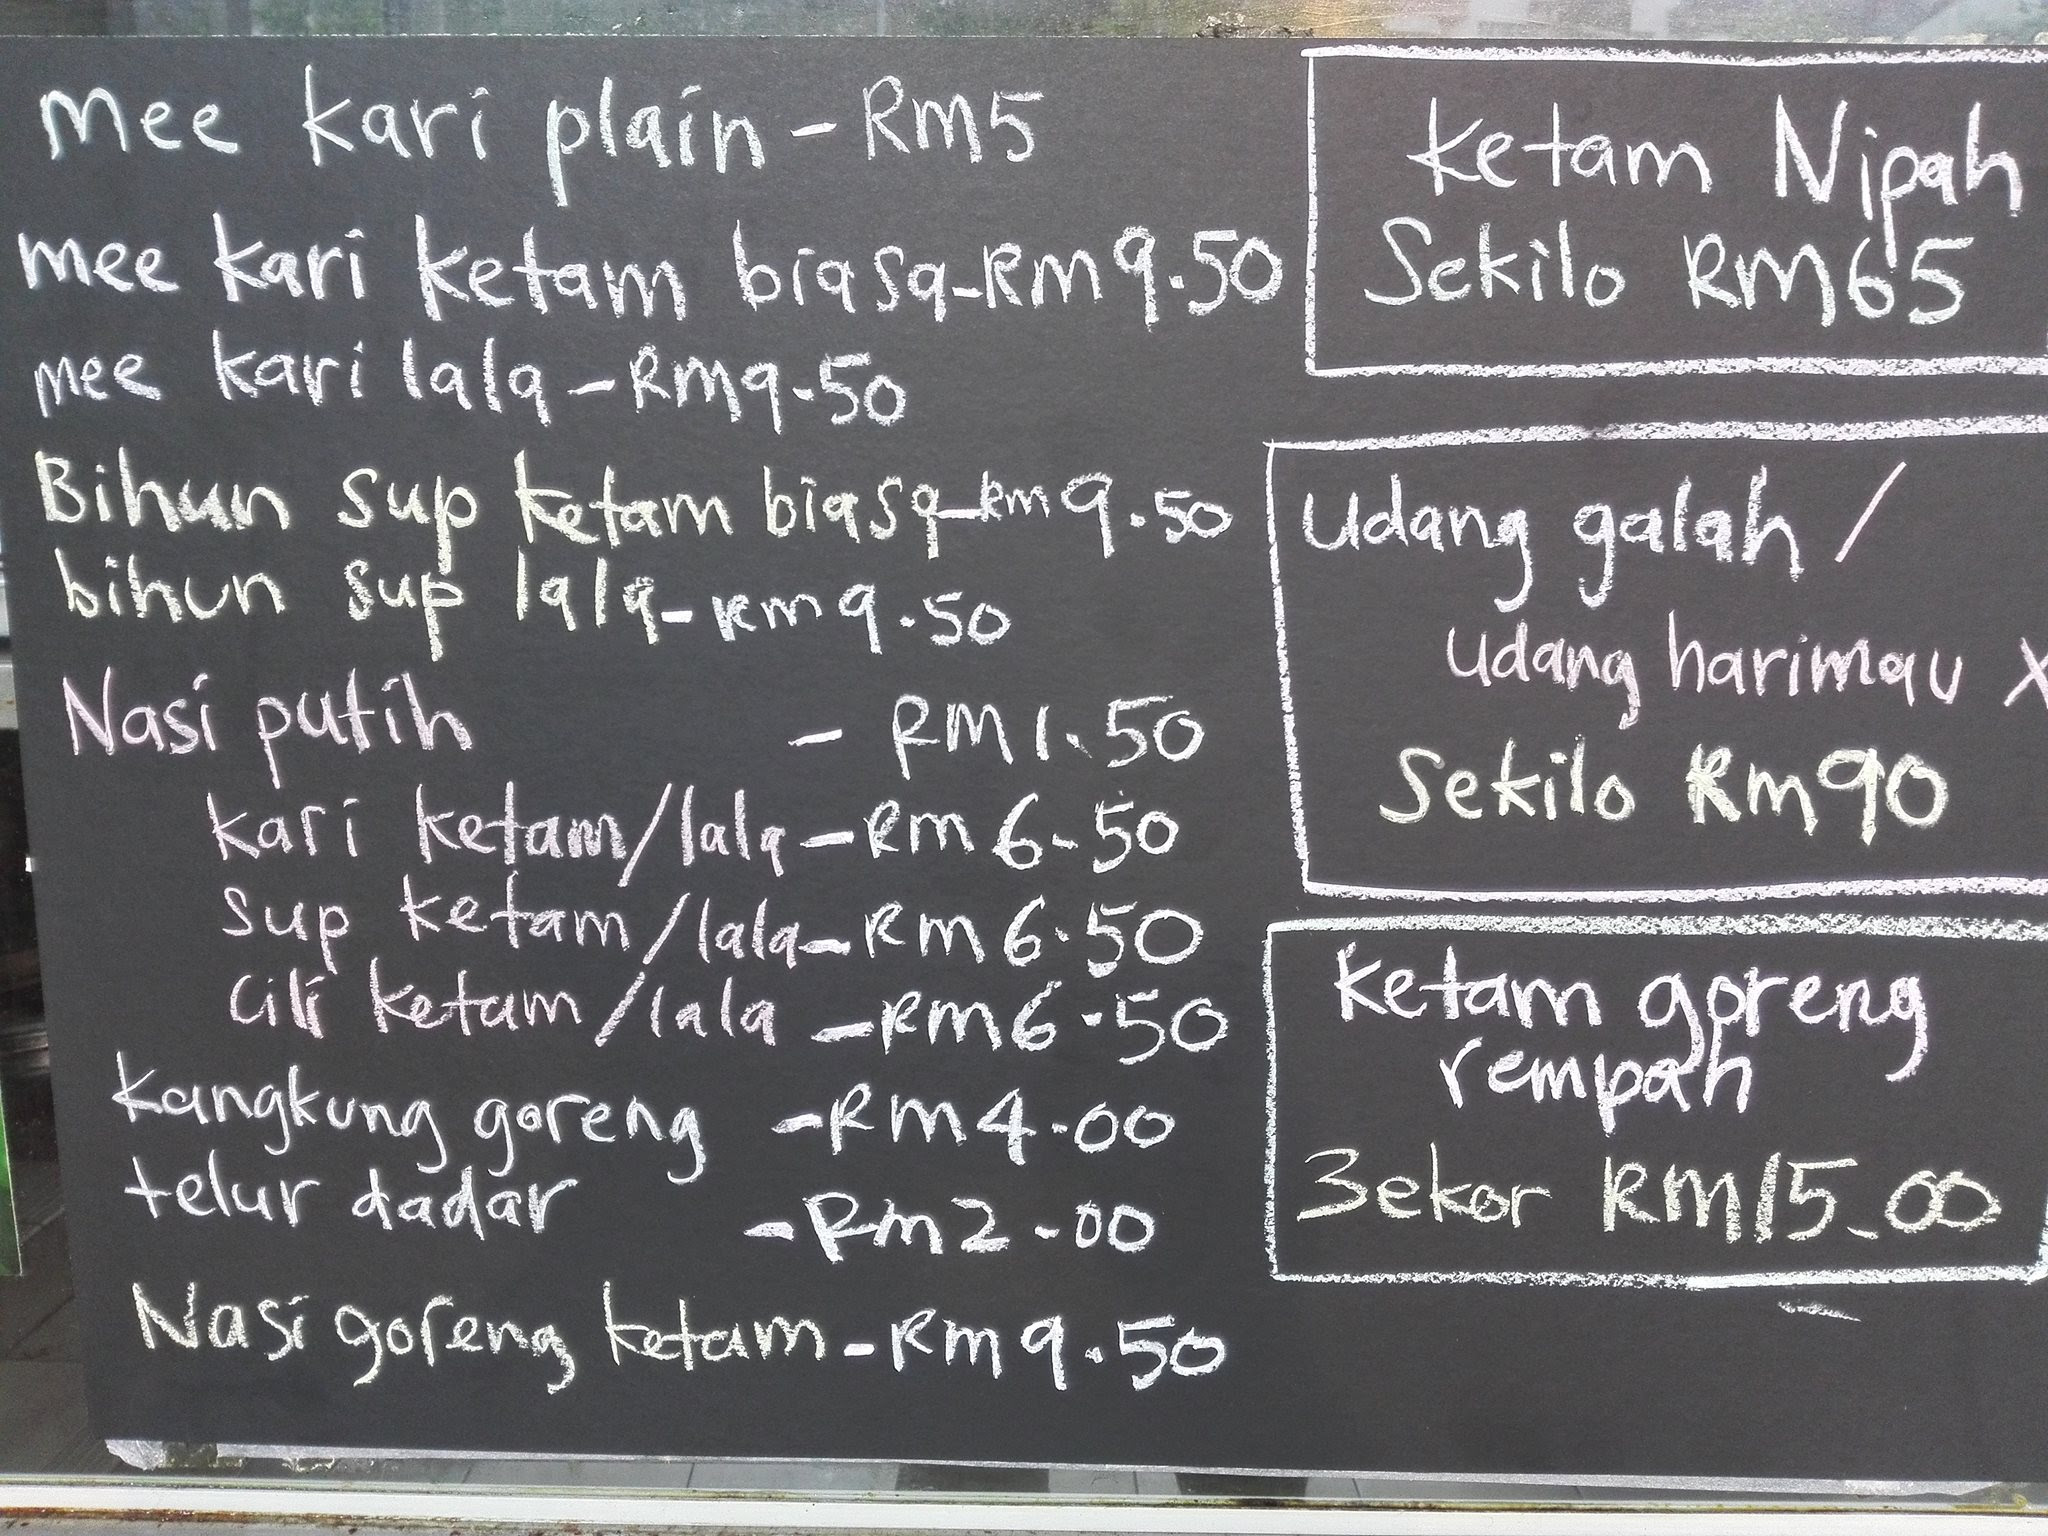 mee kari plain - RM5
mee kari ketam biasa - RM 9.50
mee kari lala - RM9.50
Bihun sup ketam biasa - RM 9.50
bihun sup lala - RM 9.50
Nasi putih - RM 1.50
kari ketam/lala - RM 6.50
sup ketam/lala - RM 6.50
cili ketam/lala - RM 6.50
kangkung goreng - RM 4.00
telur dadar - RM 2.00
Nasi goreng ketam - RM 9.50
ketam Nipah
Sekilo RM65
udang galah /
udang harimau X
Sekilo RM90
ketam goreng
rempah
3ekor RM15.00